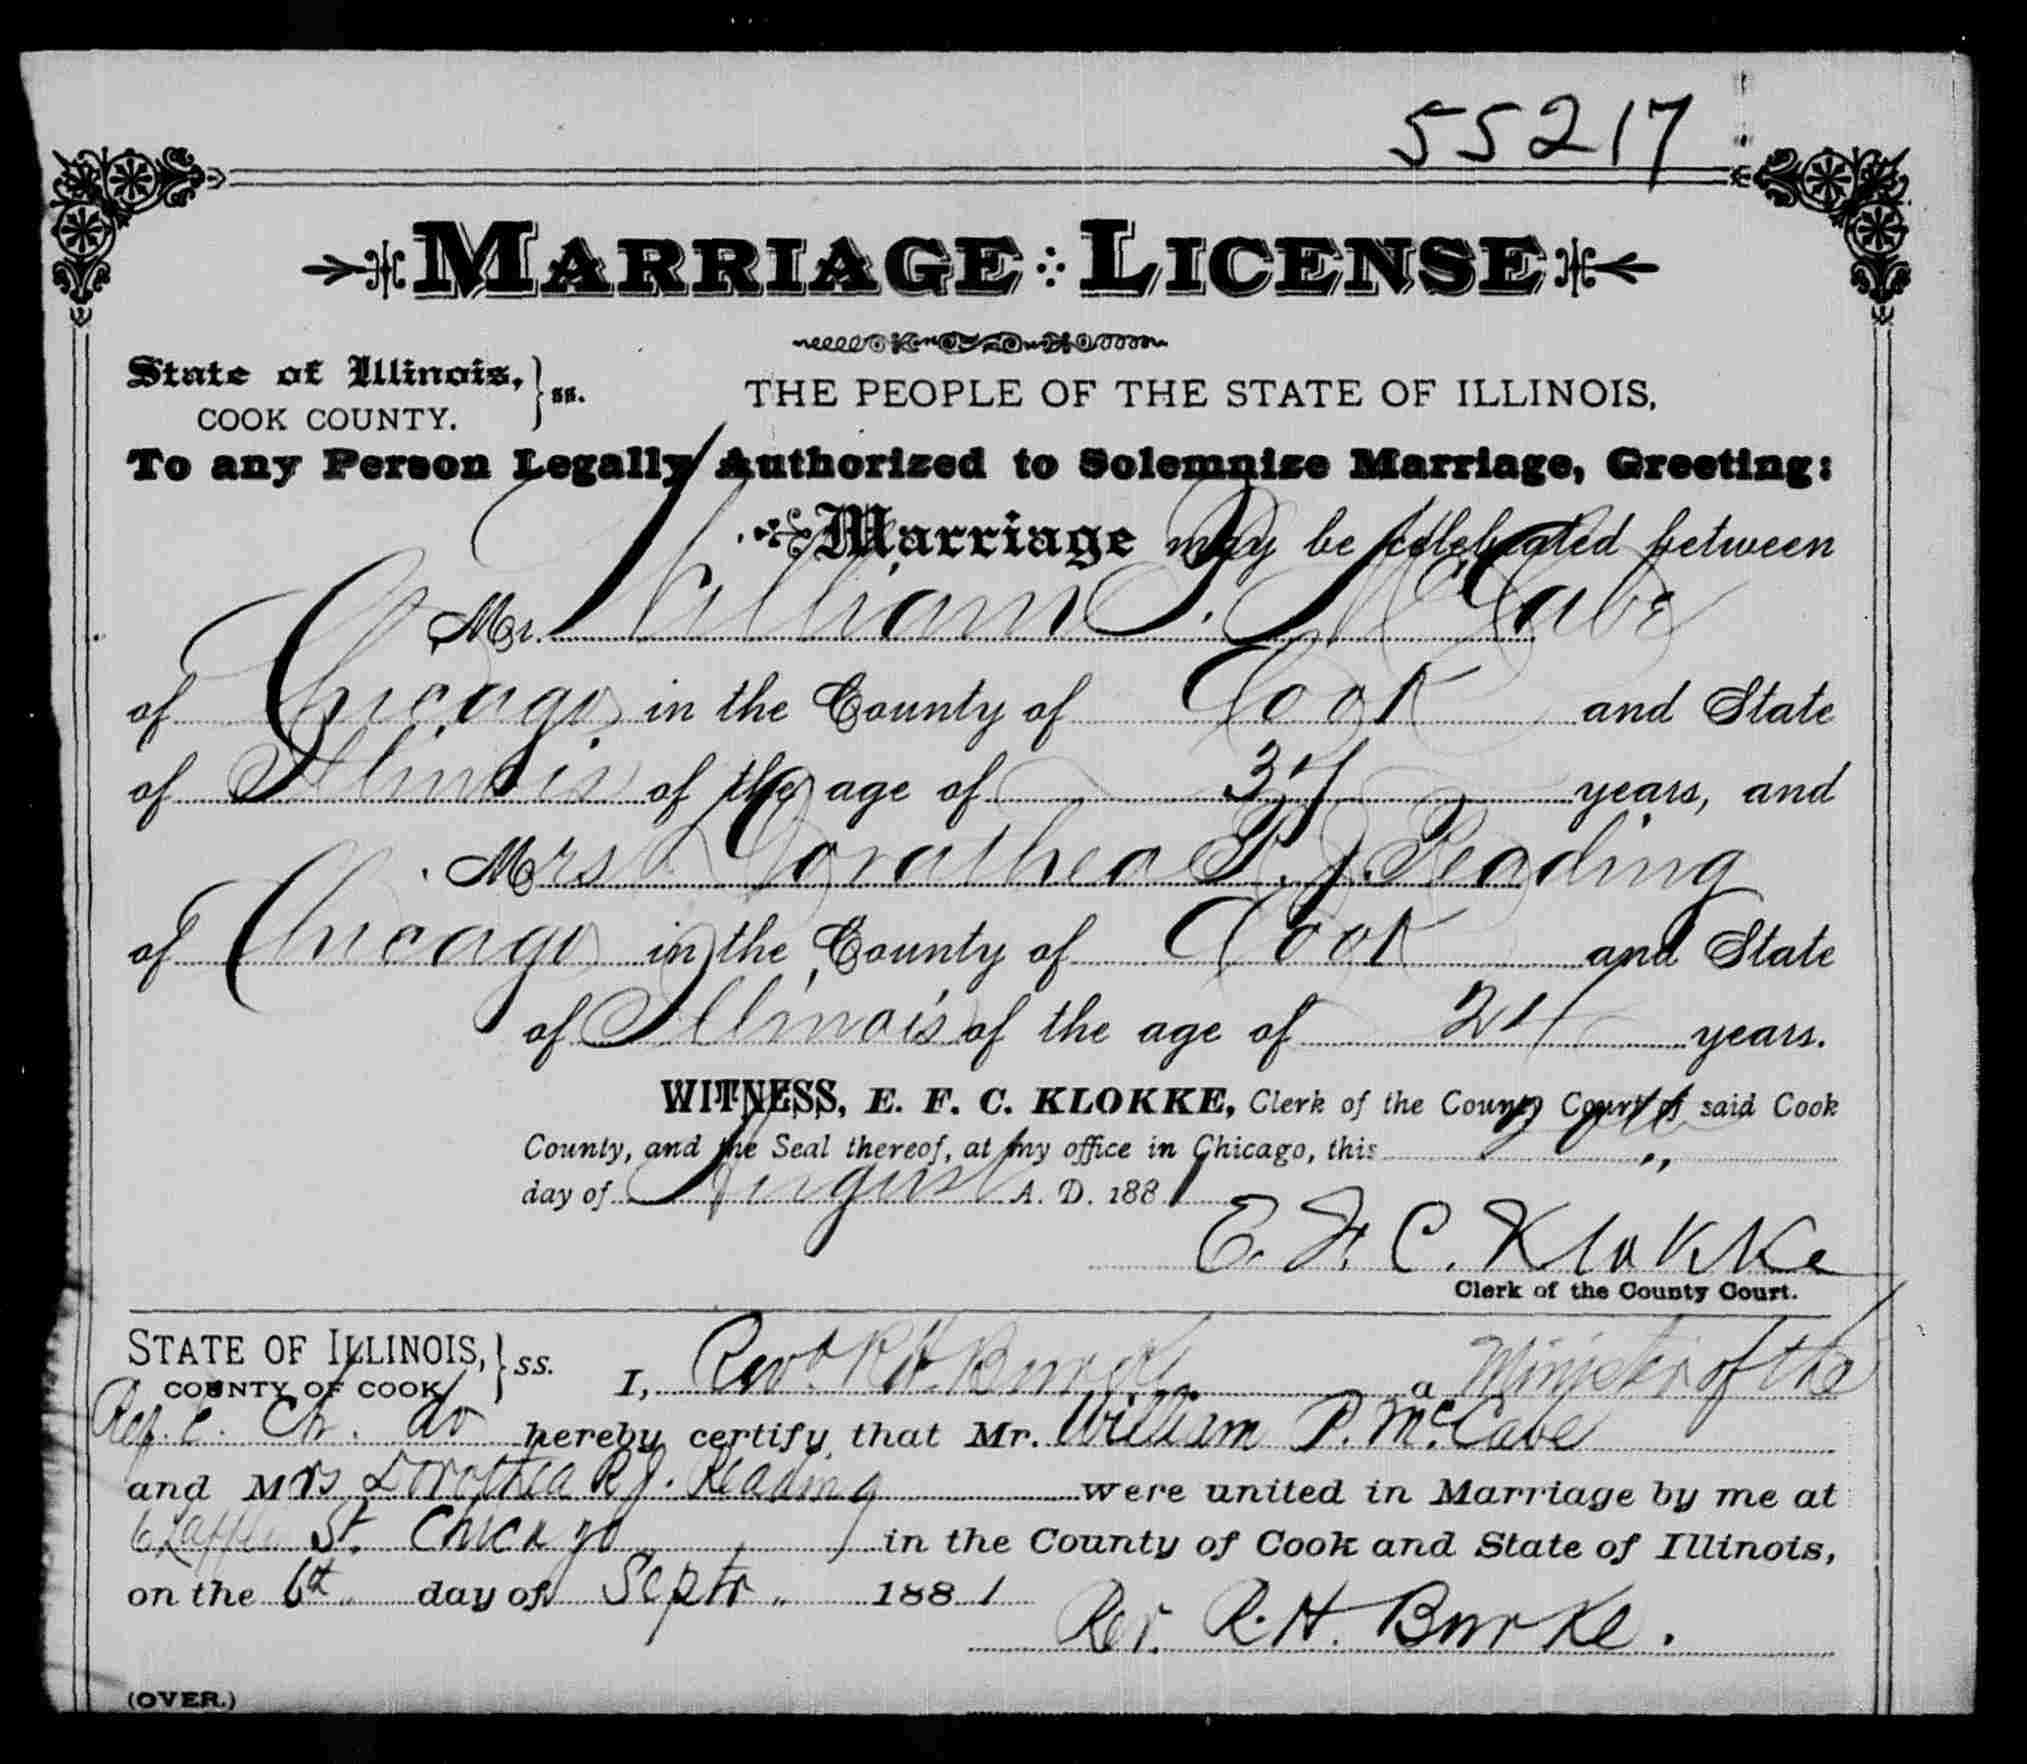 55217
MARRIAGE LICENSE
State of Illinois, } ss.
COOK COUNTY.
THE PEOPLE OF THE STATE OF ILLINOIS,
To any Person Legally Authorized to Solemnize Marriage, Greeting:
Marriage may be celebrated between
Mr. William P. McCabe
of Chicago in the County of Cook and State
of Illinois of the age of years, and
Mrs Dorothea P. J. Reading
of Chicago in the County of Cook and State
of Illinois of the age of years.
WITNESS, E. F. C. KLOKKE, Clerk of the County Court of said Cook
County, and the Seal thereof, at my office in Chicago, this
day of August A. D. 1881
E. F. C. Klokke
Clerk of the County Court.
STATE OF ILLINOIS, } ss.
COUNTY OF COOK
I, Revd. R. H. Burke a Minister of the
Ref. E. Ch. do hereby certify that Mr. William P. McCabe
and Mrs Dorothea P. J. Reading were united in Marriage by me at
St. Chicago in the County of Cook and State of Illinois,
on the 6th day of Septr 1881
Rev. R. H. Burke.
(OVER.)